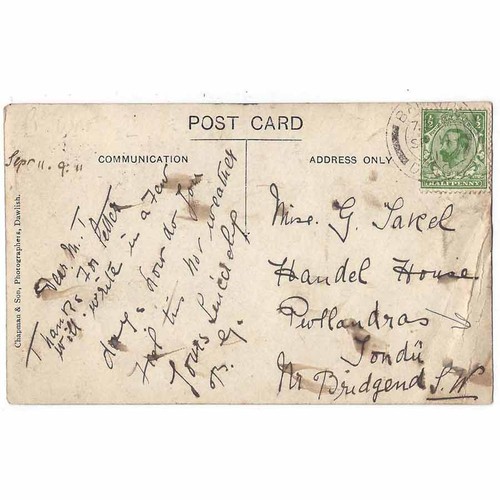 POST CARD
COMMUNICATION
ADDRESS ONLY
Sepr 11. 9. 11
Dear M. T
Thanks For letter
will write in a few
days. how do you
feel this hot weather
Yours Sincerely
B. G.
Miss. G.
Handel House
Tondû
Nr Bridgend S.W
HALFPENNY
Chapman & Son, Photographers, Dawlish.